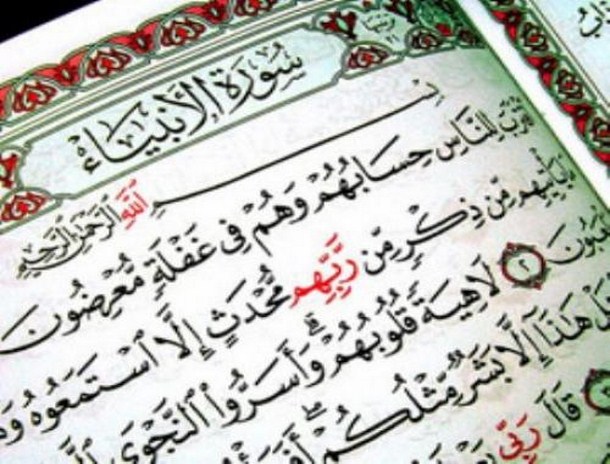 سُورَةُ الأَنْبِيَاءِ
بِسْمِ ٱللَّهِ ٱلرَّحْمَٰنِ ٱلرَّحِيمِ
لِلنَّاسِ حِسَابُهُمْ وَهُمْ فِى غَفْلَةٍ مُّعْرِضُونَ
يَأْتِيهِم مِّن ذِكْرٍ مِّن رَّبِّهِم مُّحْدَثٍ إِلَّا ٱسْتَمَعُوهُ
٢ لَاهِيَةً قُلُوبُهُمْ وَأَسَرُّوا۟ ٱلنَّجْوَى
هَٰذَآ إِلَّا بَشَرٌ مِّثْلُكُمْ
قَالَ رَبِّى